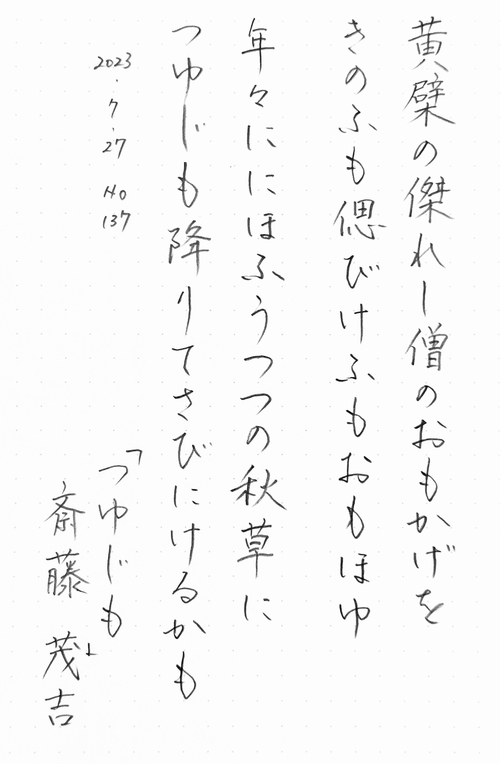 黄檗の傑れし僧のおもかげを
きのふも偲びけふもおもほゆ
年々ににほふうつつの秋草に
つゆじも降りてさびにけるかも
2023.7.27 No 137
「つゆじも」
斎藤 茂吉